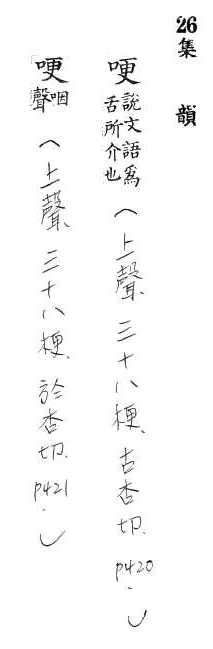 26集韻
哽說文語爲舌所介也（上聲、三十八梗、古杏切. p420.）
哽咽聲（上聲、三十八梗、於杏切. p421.）